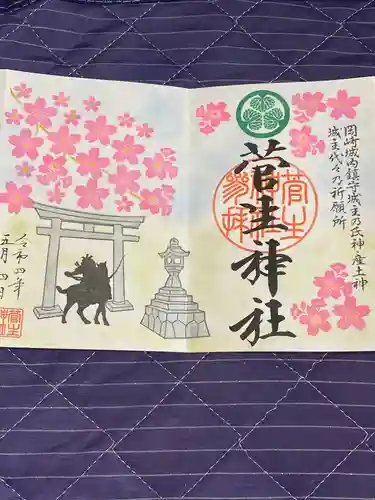 岡崎城内鎮守城主の氏神産土神
城主代々の祈願所
菅生神社
参拝
菅生
神社
令和四年
五月四日
菅生
神社